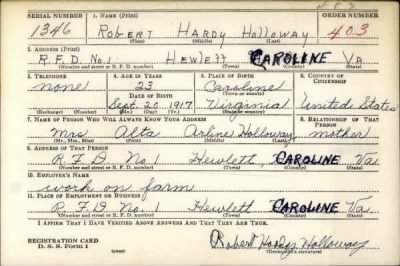 SERIAL NUMBER 1. NAME (Print) ORDER NUMBER
1346 ROBERT HARDY HOLLOWAY 403
(First) (Middle) (Last)
2. ADDRESS (Print)
R.F.D. No. 1 HEWLETT CAROLINE VA
(Number and street or R. F. D. number) (Town) (County) (State)
3. TELEPHONE 4. AGE IN YEARS 5. PLACE OF BIRTH 6. COUNTRY OF CITIZENSHIP
none 23 Caroline
DATE OF BIRTH (Town or county)
Sept. 20 1917 Virginia United States
(Exchange) (Number) (Mo.) (Day) (Yr.) (State or country)
7. NAME OF PERSON WHO WILL ALWAYS KNOW YOUR ADDRESS 8. RELATIONSHIP OF THAT PERSON
Mrs Alta Arline Holloway mother
(Mr., Mrs., Miss) (First) (Middle) (Last)
9. ADDRESS OF THAT PERSON
R.F.D. No. 1 Hewlett, CAROLINE Va.
(Number and street or R. F. D. number) (Town) (County) (State)
10. EMPLOYER'S NAME
work on farm
11. PLACE OF EMPLOYMENT OR BUSINESS
R.F.D. No. 1 Hewlett CAROLINE Va.
(Number and street or R. F. D. number) (Town) (County) (State)
I AFFIRM THAT I HAVE VERIFIED ABOVE ANSWERS AND THAT THEY ARE TRUE.
REGISTRATION CARD
D. S. S. Form 1 (over)
Robert Hardy Holloway
(Registrant's signature)